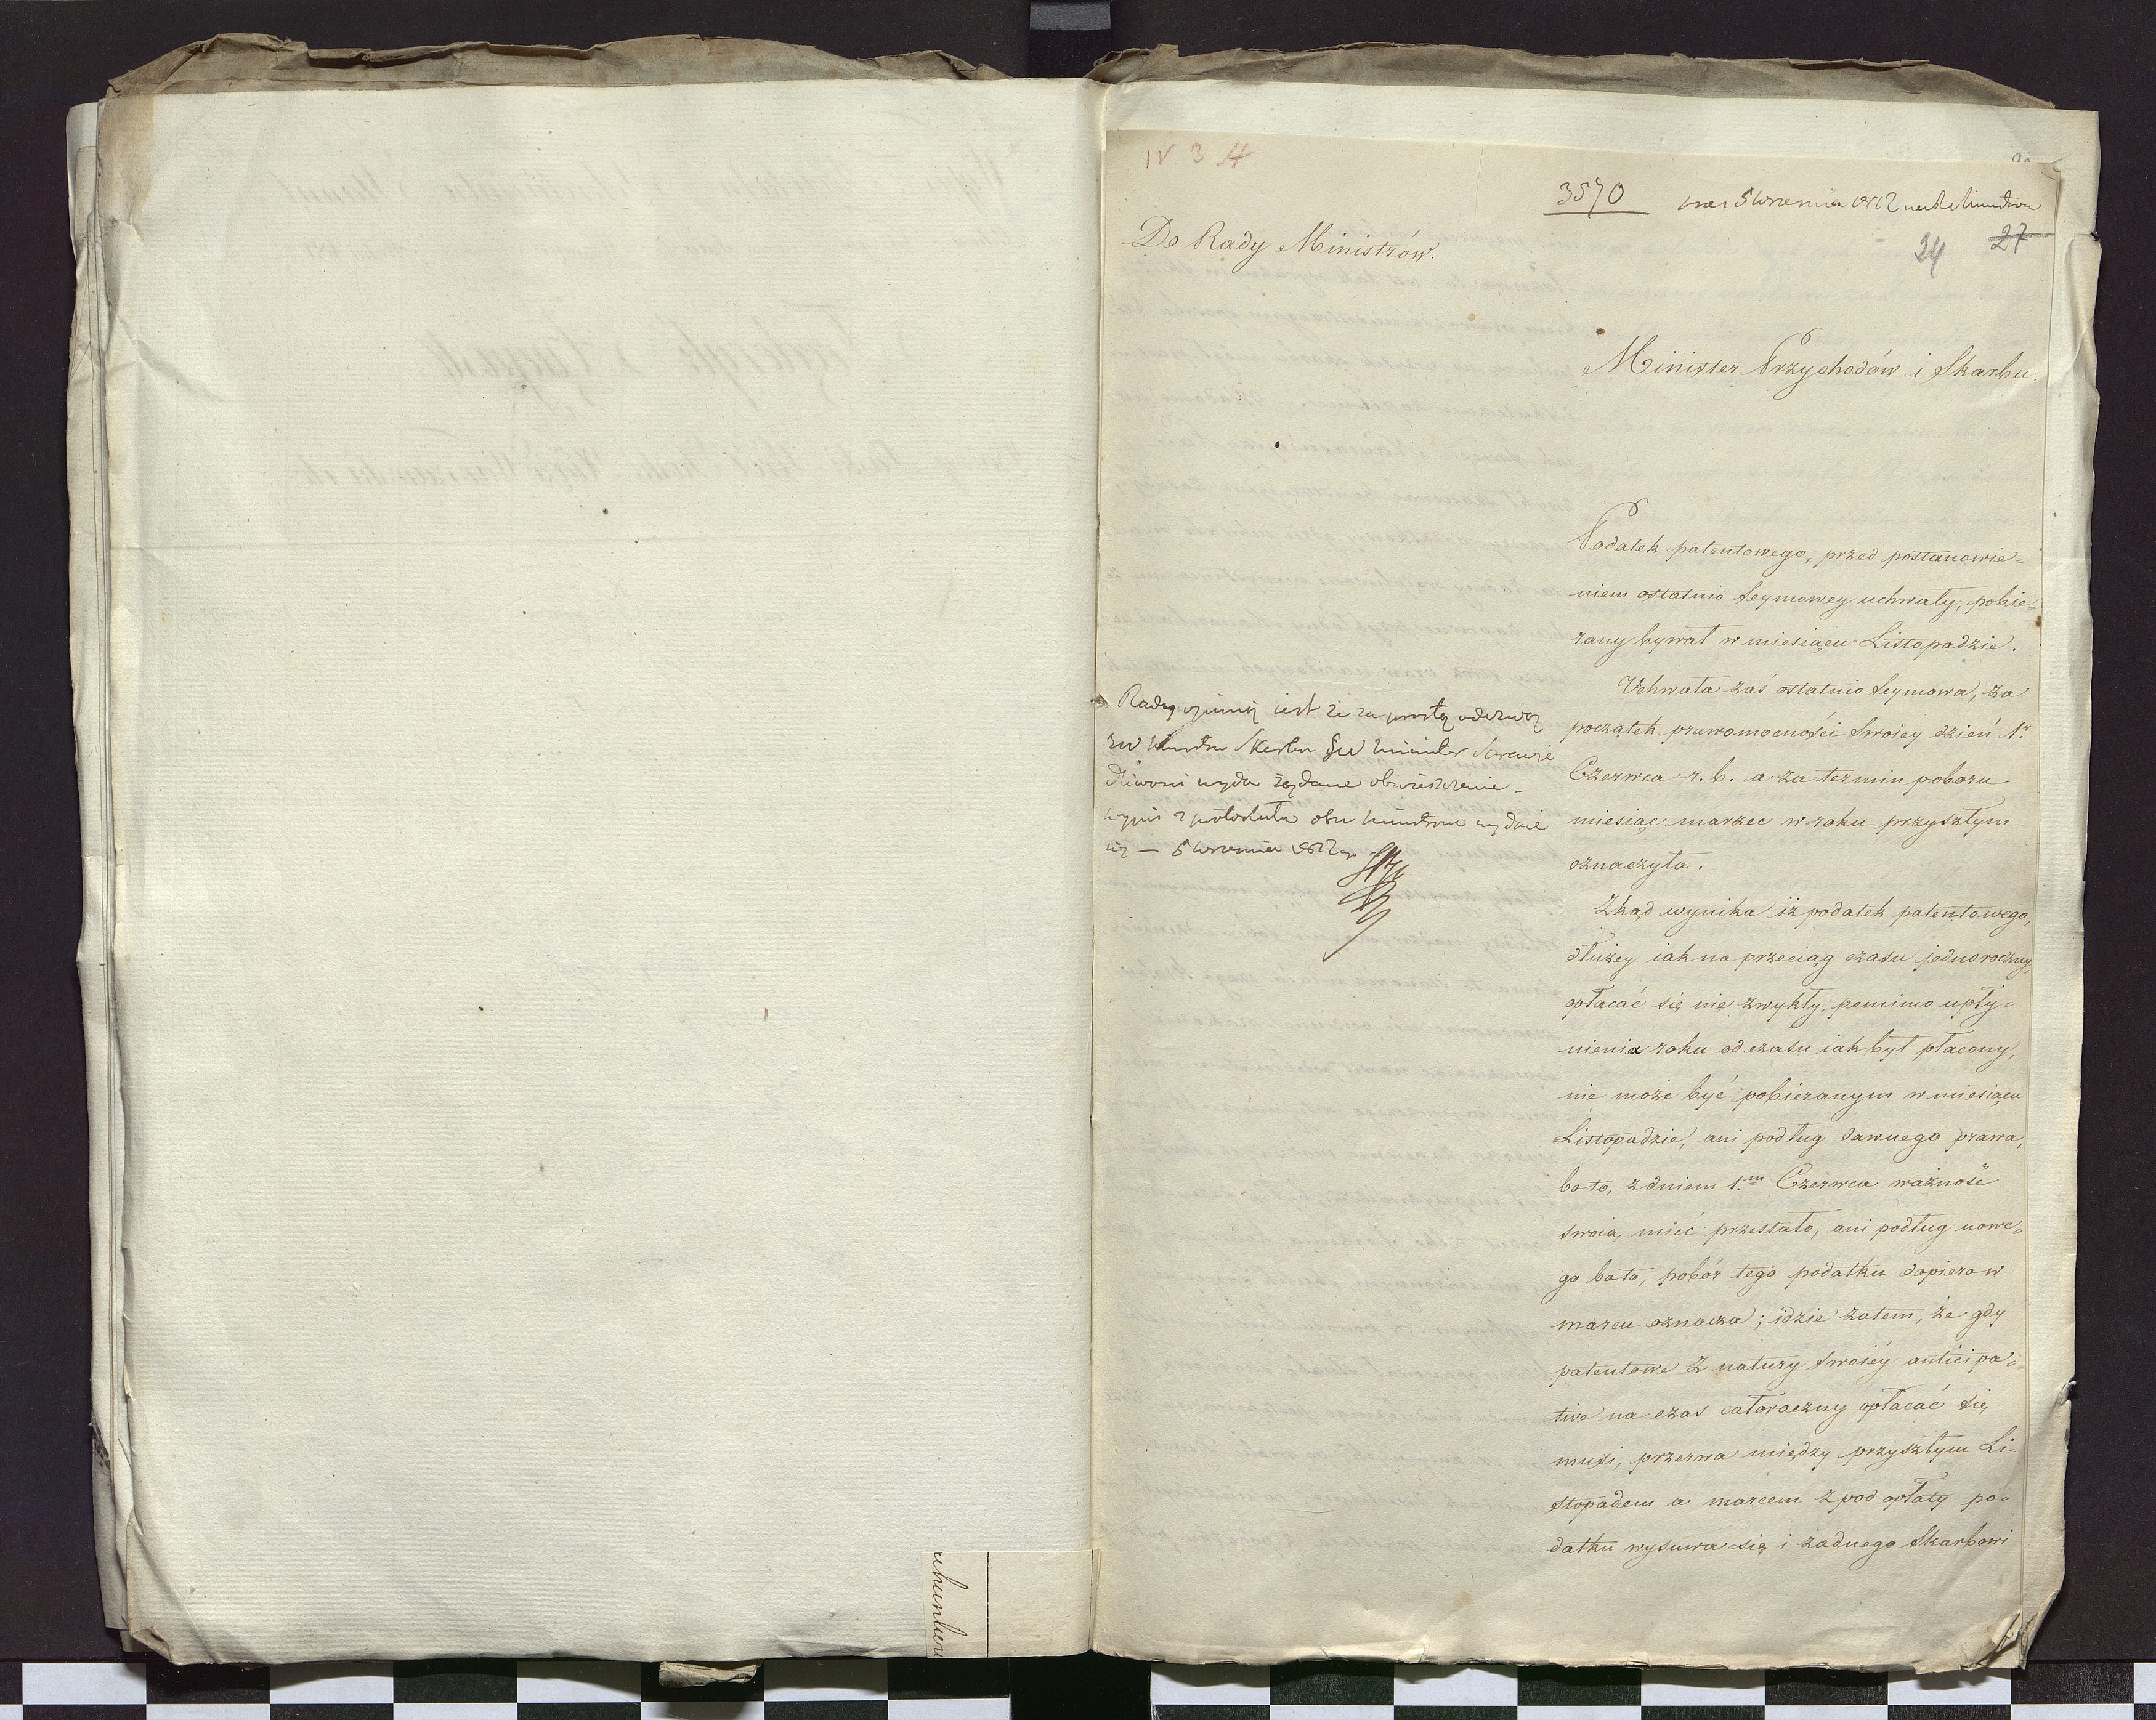 IV 3 4
3570
5 Wrzesnia 1812
27
24
Do Rady Ministrów.
Minister Przychodów i Skarbu.
Podatek patentowego, przed postanowie=
niem ostatnio Seymowey uchwały, pobie=
rany bywał w miesiącu Listopadzie.
Uchwała zaś ostatnio Seymowa, za
początek prawomocności swoiey dzień 1.
Czerwca r. b. a za termin poboru
miesiąc marzec w roku przyszłym
oznaczyła.
Zkąd wynika iż podatek patentowego,
dłużey iak na przeciąg czasu jednoroczny,
opłacać się nie zwykły, pomimo upły=
nienia roku od czasu iak był płacony,
nie może być pobieranym w miesiącu
Listopadzie, ani podług dawnego prawa,
bo to, z dniem 1.m Czerwca ważność
swoią mieć przestało, ani podług nowe=
go bo to, pobór tego podatku dopiero w
marcu oznacza; idzie zatem, że gdy
patentowe z natury swoiéy anticipa=
tive na czas całoroczny opłacać się
musi, przerwa między przyszłym Li=
stopadem a marcem z pod opłaty po=
datku wysuwa się i żadnego Skarbowi
Rady opinią iest że za prostą odezwą
JW Ministra Skarbu JW Minister Sprawie
dliwości wyda żądane obwieszczenie -
wypis z protokułu obu Ministrom wydać
się — 5 Wrzesnia 1812